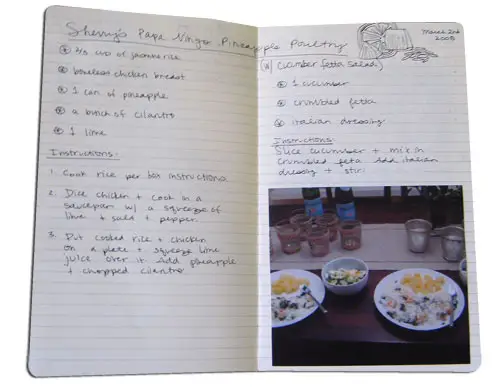 Sherry's Papa Ningo Pineapple Poultry
⅔ cup of jasmine rice
boneless chicken breast
1 can of pineapple
a bunch of cilantro
1 lime
Instructions:
1. Cook rice per box instructions
2. Dice chicken + cook in a
saucepan w/ a squeeze of
lime + salt + pepper.
3. Put cooked rice + chicken
on a plate + squeeze lime
juice over it. Add pineapple
+ chopped cilantro
March 2nd
2008
(w/ cucumber fetta salad)
1 cucumber
crumbled fetta
italian dressing
Instructions:
Slice cucumber + mix in
crumbled feta. Add italian
dressing + stir.